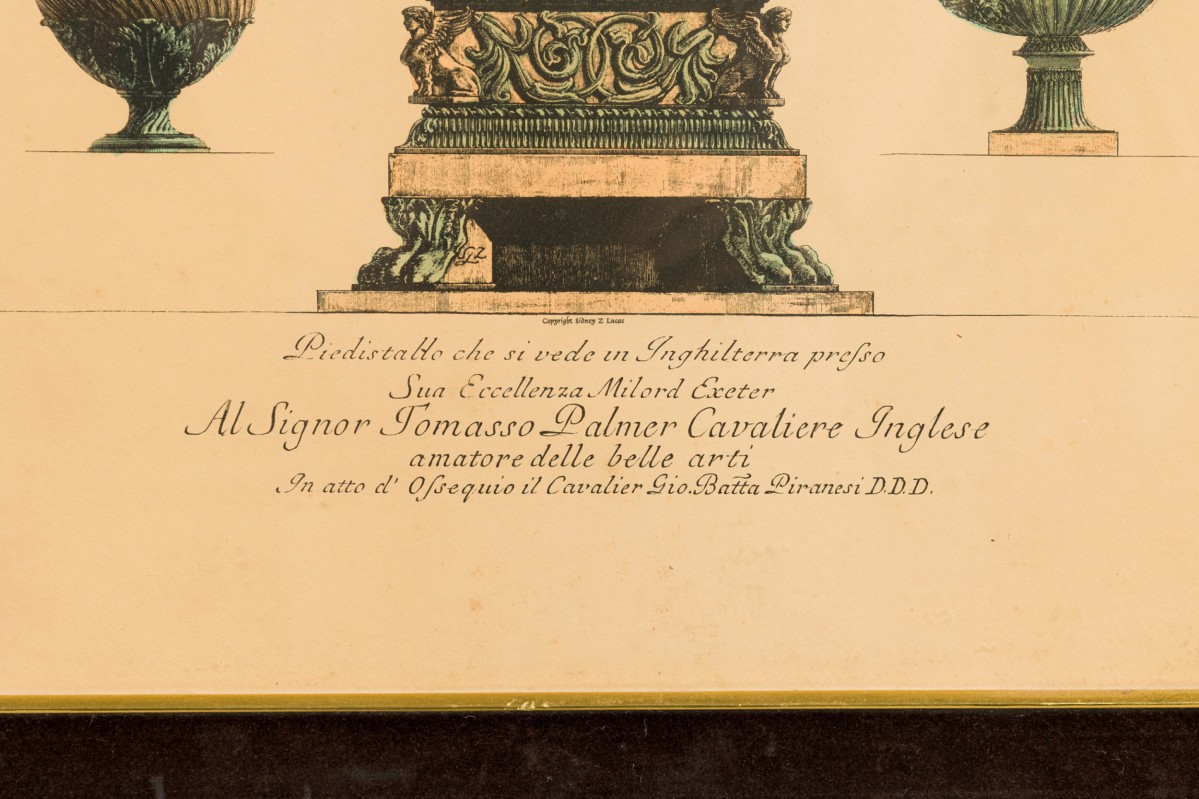 Copyright Sidney Z Lucas
Piedistallo che si vede in Inghilterra preſso
Sua Eccellenza Milord Exeter
Al Signor Tomasso Palmer Cavaliere Inglese
amatore delle belle arti
In atto d' Oſsequio il Cavalier Gio. Batt̃a Piranesi D.D.D.